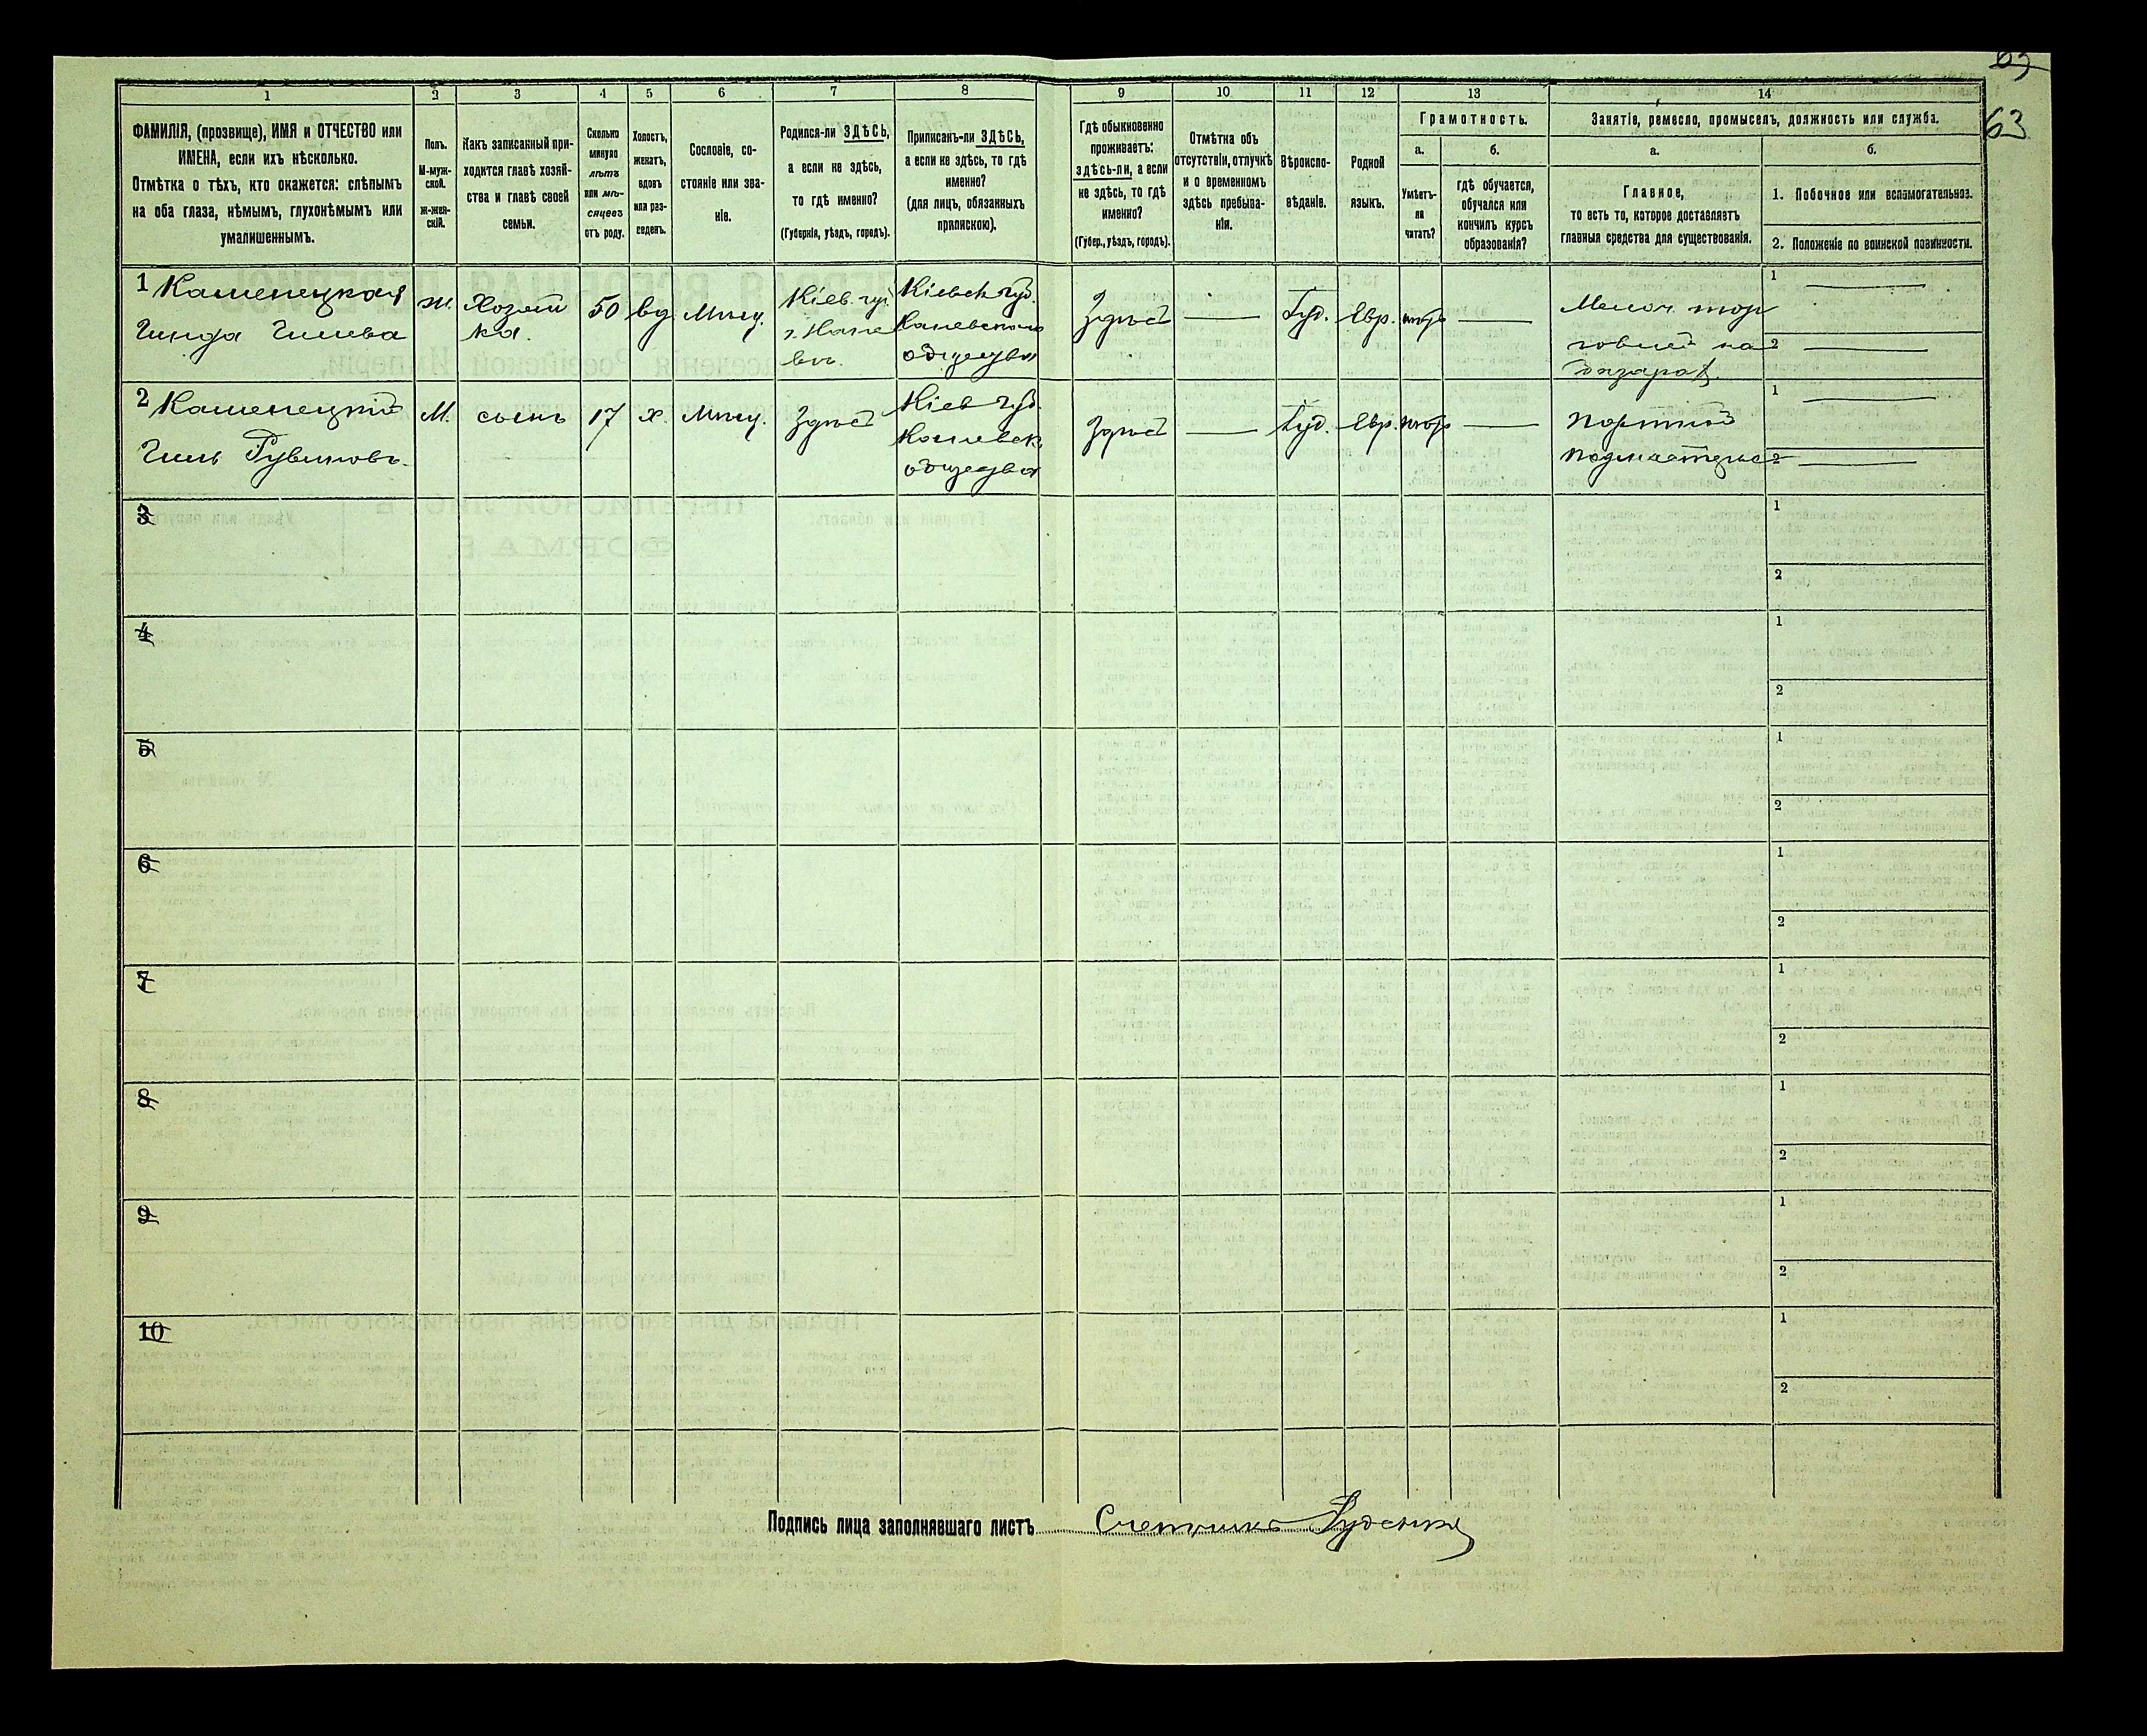 63
63
1
2
3
4
5
6
7
8
9
10
11
12
13
14
ФАМИЛІЯ, (прозвище), ИМЯ и ОТЧЕСТВО или
ИМЕНА, если ихъ нѣсколько.
Отмѣтка о тѣхъ, кто окажется: слѣпымъ
на оба глаза, нѣмымъ, глухонѣмымъ или
умалишеннымъ.
Полъ.
М-муж-
ской.
Ж-жен-
скій.
Какъ записанный при-
ходится главѣ хозяй-
ства и главѣ своей
семьи.
Сколько
минуло
лѣтъ
или мѣ-
сяцевъ
отъ роду.
Холостъ,
женатъ,
вдовъ
или раз-
веденъ.
Сословіе, со-
стояніе или зва-
ніе.
Родился-ли ЗДѢСЬ,
а если не здѣсь,
то гдѣ именно?
(Губернія, уѣздъ, городъ).
Приписанъ-ли ЗДѢСЬ,
а если не здѣсь, то гдѣ
именно?
(для лицъ, обязанныхъ
припискою).
Гдѣ обыкновенно
проживаетъ:
здѣсь-ли, а если
не здѣсь, то гдѣ
именно?
(Губер., уѣздъ, городъ).
Отмѣтка объ
отсутствіи, отлучкѣ
и о временномъ
здѣсь пребыва-
ніи.
Вѣроиспо-
вѣданіе.
Родной
языкъ.
Грамотность.
а.
б.
Умѣетъ-
ли
читать?
гдѣ обучается,
обучался или
кончилъ курсъ
образованія?
Занятіе, ремесло, промыселъ, должность или служба.
а.
б.
Главное,
то есть то, которое доставляетъ
главныя средства для существованія.
1. Побочное или вспомогательное.
2. Положеніе по воинской повинности.
1 Каменецкая
Гинда Гилева
ж.
Хозяй
ка.
50
вд
Мѣщ.
Кіев. губ
г. Кане
въ.
Кіевск губ.
Каневскаго
общества
Здѣсь
Іуд.
Евр.
Мелоч. тор
говлей на
базарѣ.
1
2
2 Каменецкій
Гиль Рувиновъ
М.
сынъ
17
х.
Мѣщ.
Здѣсь
Кіев губ.
Каневск
общества
Здѣсь
Іуд.
Евр.
Портной
подмастерье
1
2
3
1
2
4
1
2
5
1
2
6
1
2
7
1
2
8
1
2
9
1
2
10
1
2
Подпись лица заполнявшаго листъ
Счетчикъ